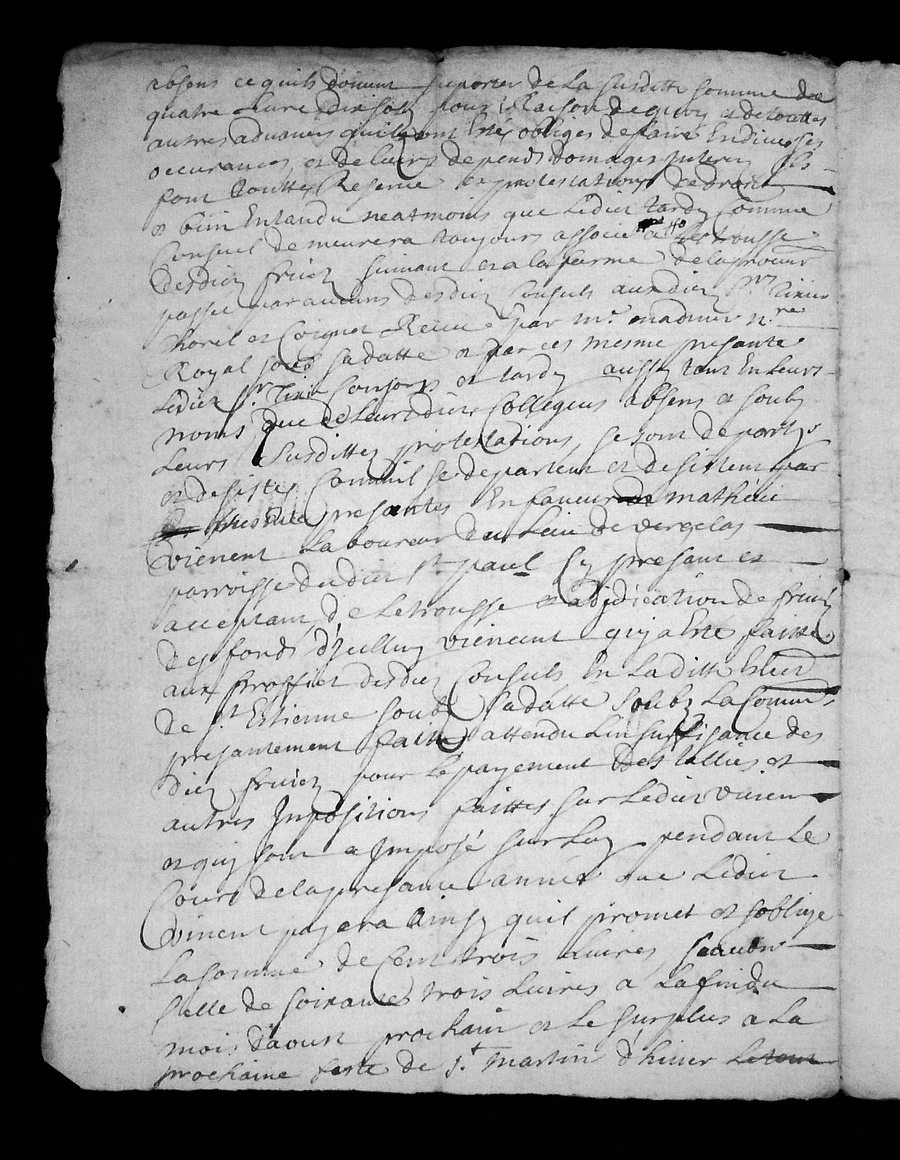 absens ce quils doivent suporter de la susditte somme de
quatre livre dix sols pour raison de quoy et de touttes
autres advances quils ont estés obliges de faire en diverses
occurances et de leurs depends domages interes ils
font touttes reserve et protestations de droit
et bien entandu neatmoins que ledict tardy comme
Consul demeurera toujours associé a letrousse
desdicts fruicts suivant et a la forme de la
passee par aucuns desdicts Consuls auxdicts Srs
thorel et Coignet Receue par mr madinier nre
Royal soubs sa datte et par ces mesme presante
Ledict Sr Consors et tardy aussy tant en leurs
noms que de leursdicts Collegues absens et soubs
leurs susdittes protestations, se sont departys
et desistés comme il se departent et desistent par
presantes en faveur de mathieu
vienent laboureur du lieu de vergelas
parroisse dudict St paul Cy presant et
acceptant de letrousse et adjdication de fruicts
des fonds dheulluy vienent quy a esté faitte
aux proffict desdicts Consuls en laditte
de St Estienne soubs sa datte soubz la
presantement faitte attendu linsuffisance des
dicts fruicts pour le payement des tallies et
autres Impositions faittes sur ledict vienen
et quy sont a Imposé sur luy pendant le
Cours de la presante année que ledict
vinent payera ainsy quil promet et soblige
la somme de Cent trois livres, scavoir
Celle de soixante trois livres a la fin du
mois daoust prochain et le surplus a la
prochaine feste de St martin dhiver le tout